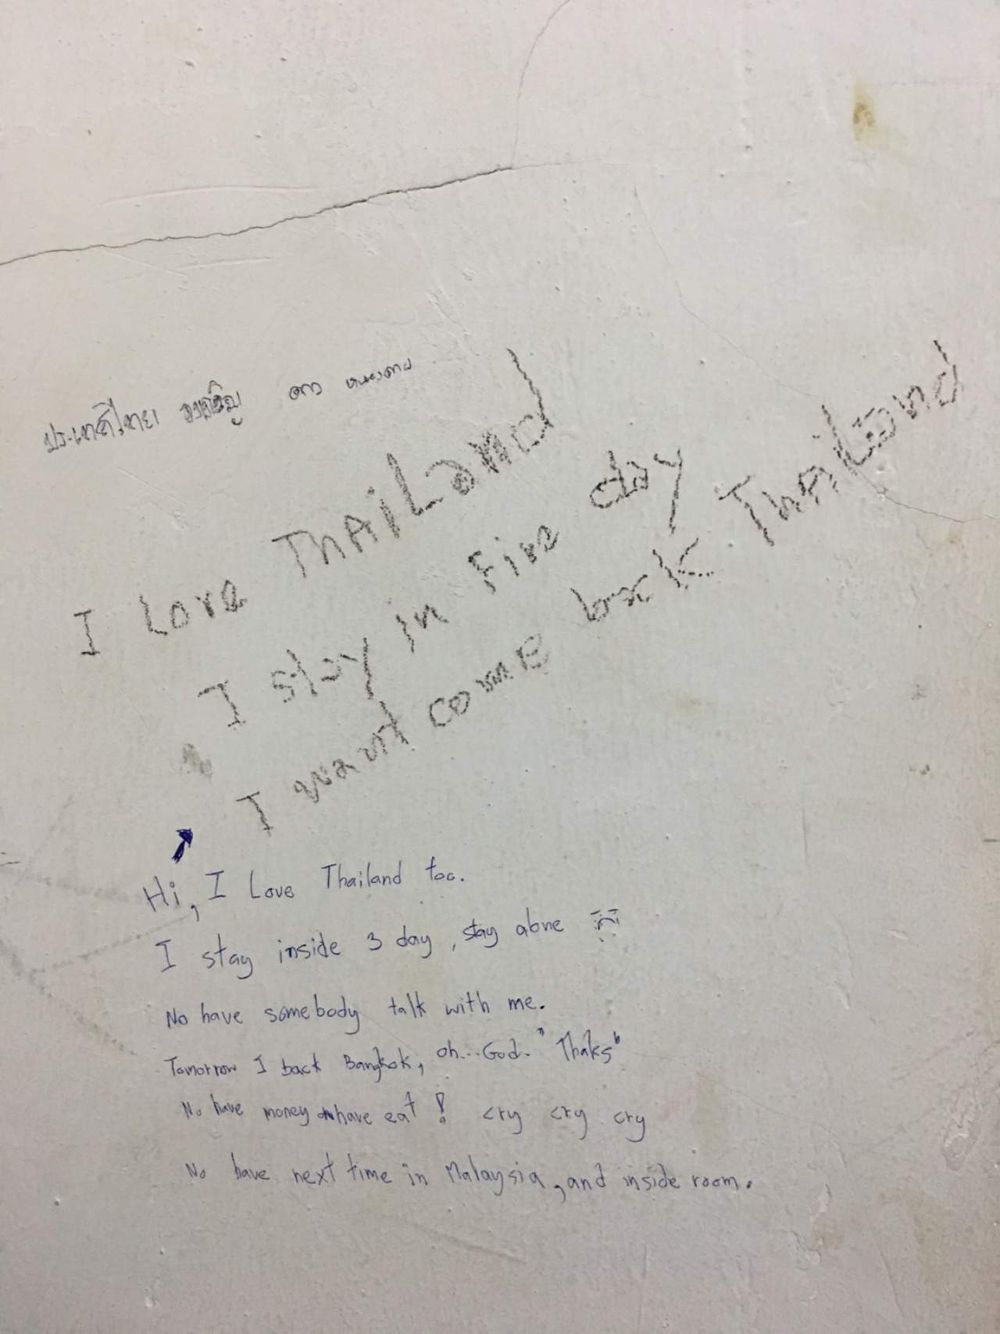 ประเทศไทย
I Love ThAiLand
I stay in Five day
I want come back ThaiLand
Hi, I Love Thailand too.
I stay inside 3 day, stay alone
No have somebody talk with me.
Tomorrow I back Bangkok, oh...God. "Thaks"
No have money have eat! cry cry cry
No have next time in Malaysia, and inside room.